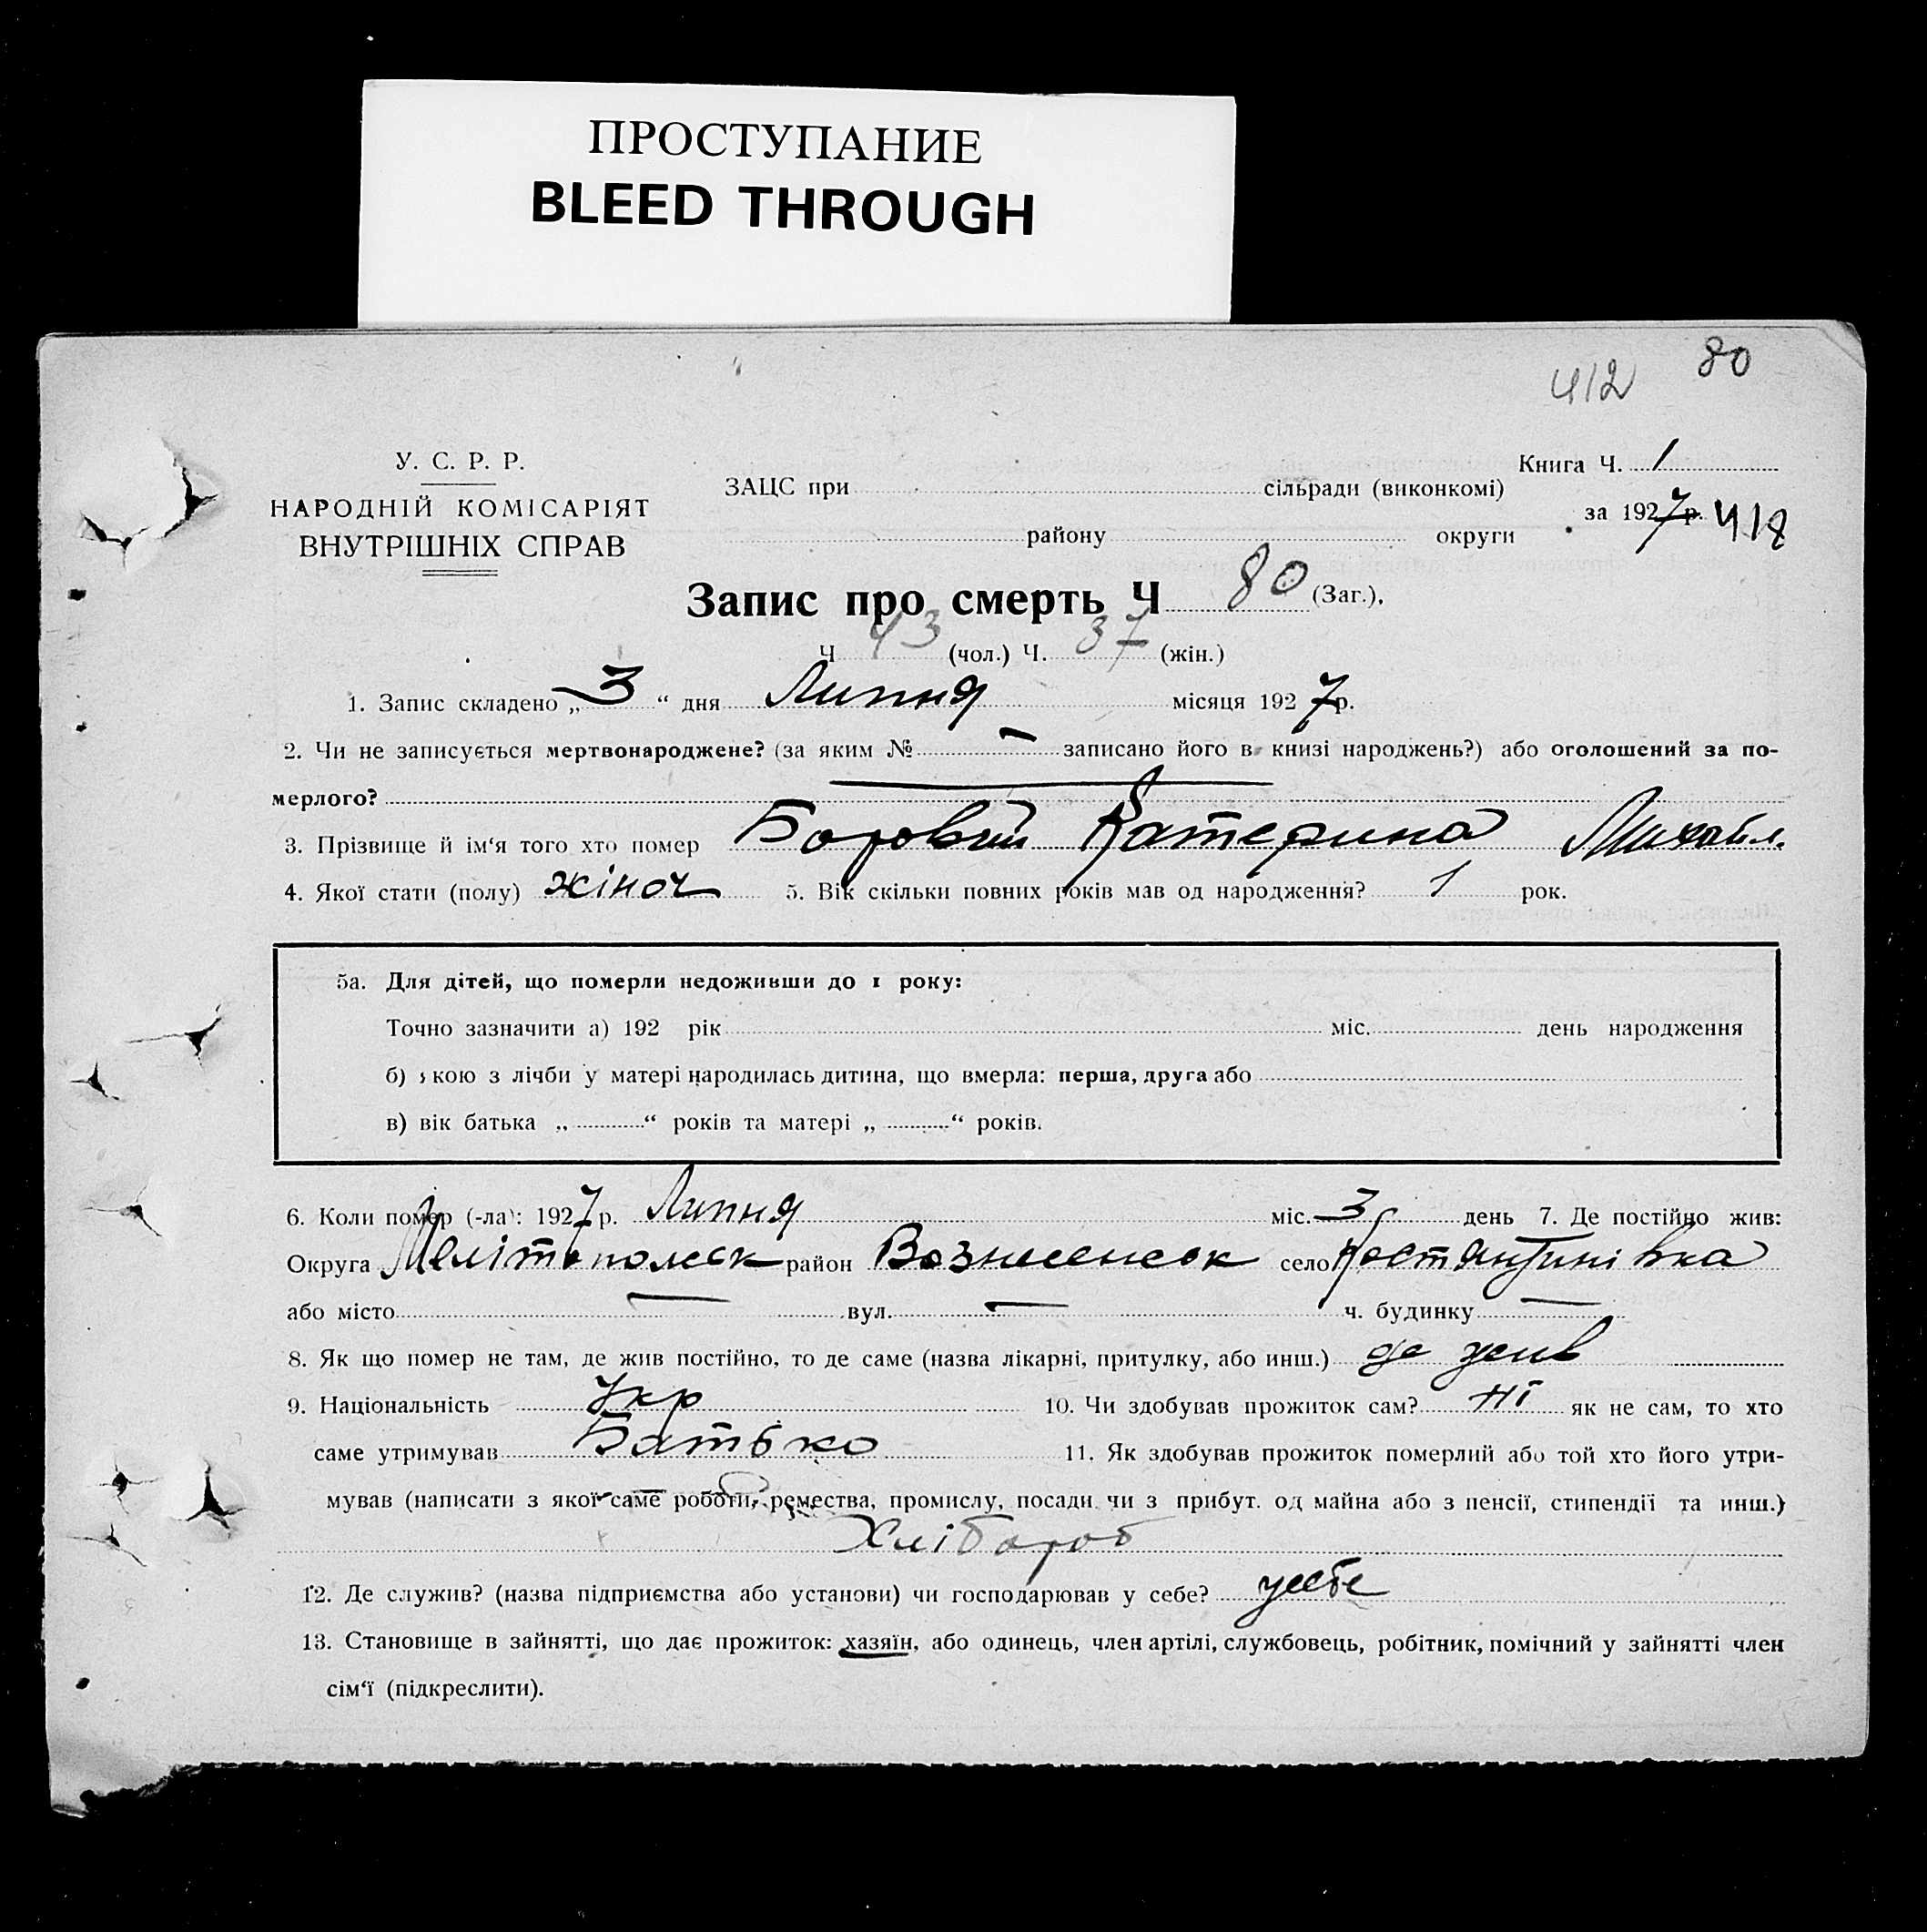 ПРОСТУПАНИЕ
BLEED THROUGH
412 80
У. С. Р. Р.
НАРОДНІЙ КОМІСАРІЯТ
ВНУТРІШНІХ СПРАВ
Книга Ч. 1
ЗАЦС при сільради (виконкомі)
за 1927 р. 418
району округи
Запис про смерть Ч 80 (Заг.),
Ч 43 (чол.) Ч. 37 (жін.)
1. Запис складено „ 3 “ дня Липня місяця 1927 р.
2. Чи не записується мертвонароджене? (за яким № — записано його в книзі народжень?) або оголошений за по-
мерлого?
3. Прізвище й ім‘я того хто помер Боровий Катерина Михайл.
4. Якої стати (полу) жіноч 5. Вік скільки повних років мав од народження? 1 рок.
5а. Для дітей, що померли недоживши до 1 року:
Точно зазначити а) 192 рік міс. день народження
б) якою з лічби у матері народилась дитина, що вмерла: перша, друга або
в) вік батька „ “ років та матері „ “ років.
6. Коли помер (-ла): 1927 р. Липня міс. 3 день 7. Де постійно жив:
Округа Мелітопольск район Вознесенськ село Костянтинівка
або місто — вул. — ч. будинку —
8. Як що помер не там, де жив постійно, то де саме (назва лікарні, притулку, або инш.) де жив
9. Національність Укр 10. Чи здобував прожиток сам? ні як не сам, то хто
саме утримував Батько 11. Як здобував прожиток померлий або той хто його утри-
мував (написати з якої саме роботи, ремества, промислу, посади чи з прибут. од майна або з пенсії, стипендії та инш.)
Хлібороб
12. Де служив? (назва підприємства або установи) чи господарював у себе? усебе
13. Становище в зайнятті, що дає прожиток: хазяїн, або одинець, член артілі, службовець, робітник, помічний у зайнятті член
сім‘ї (підкреслити).